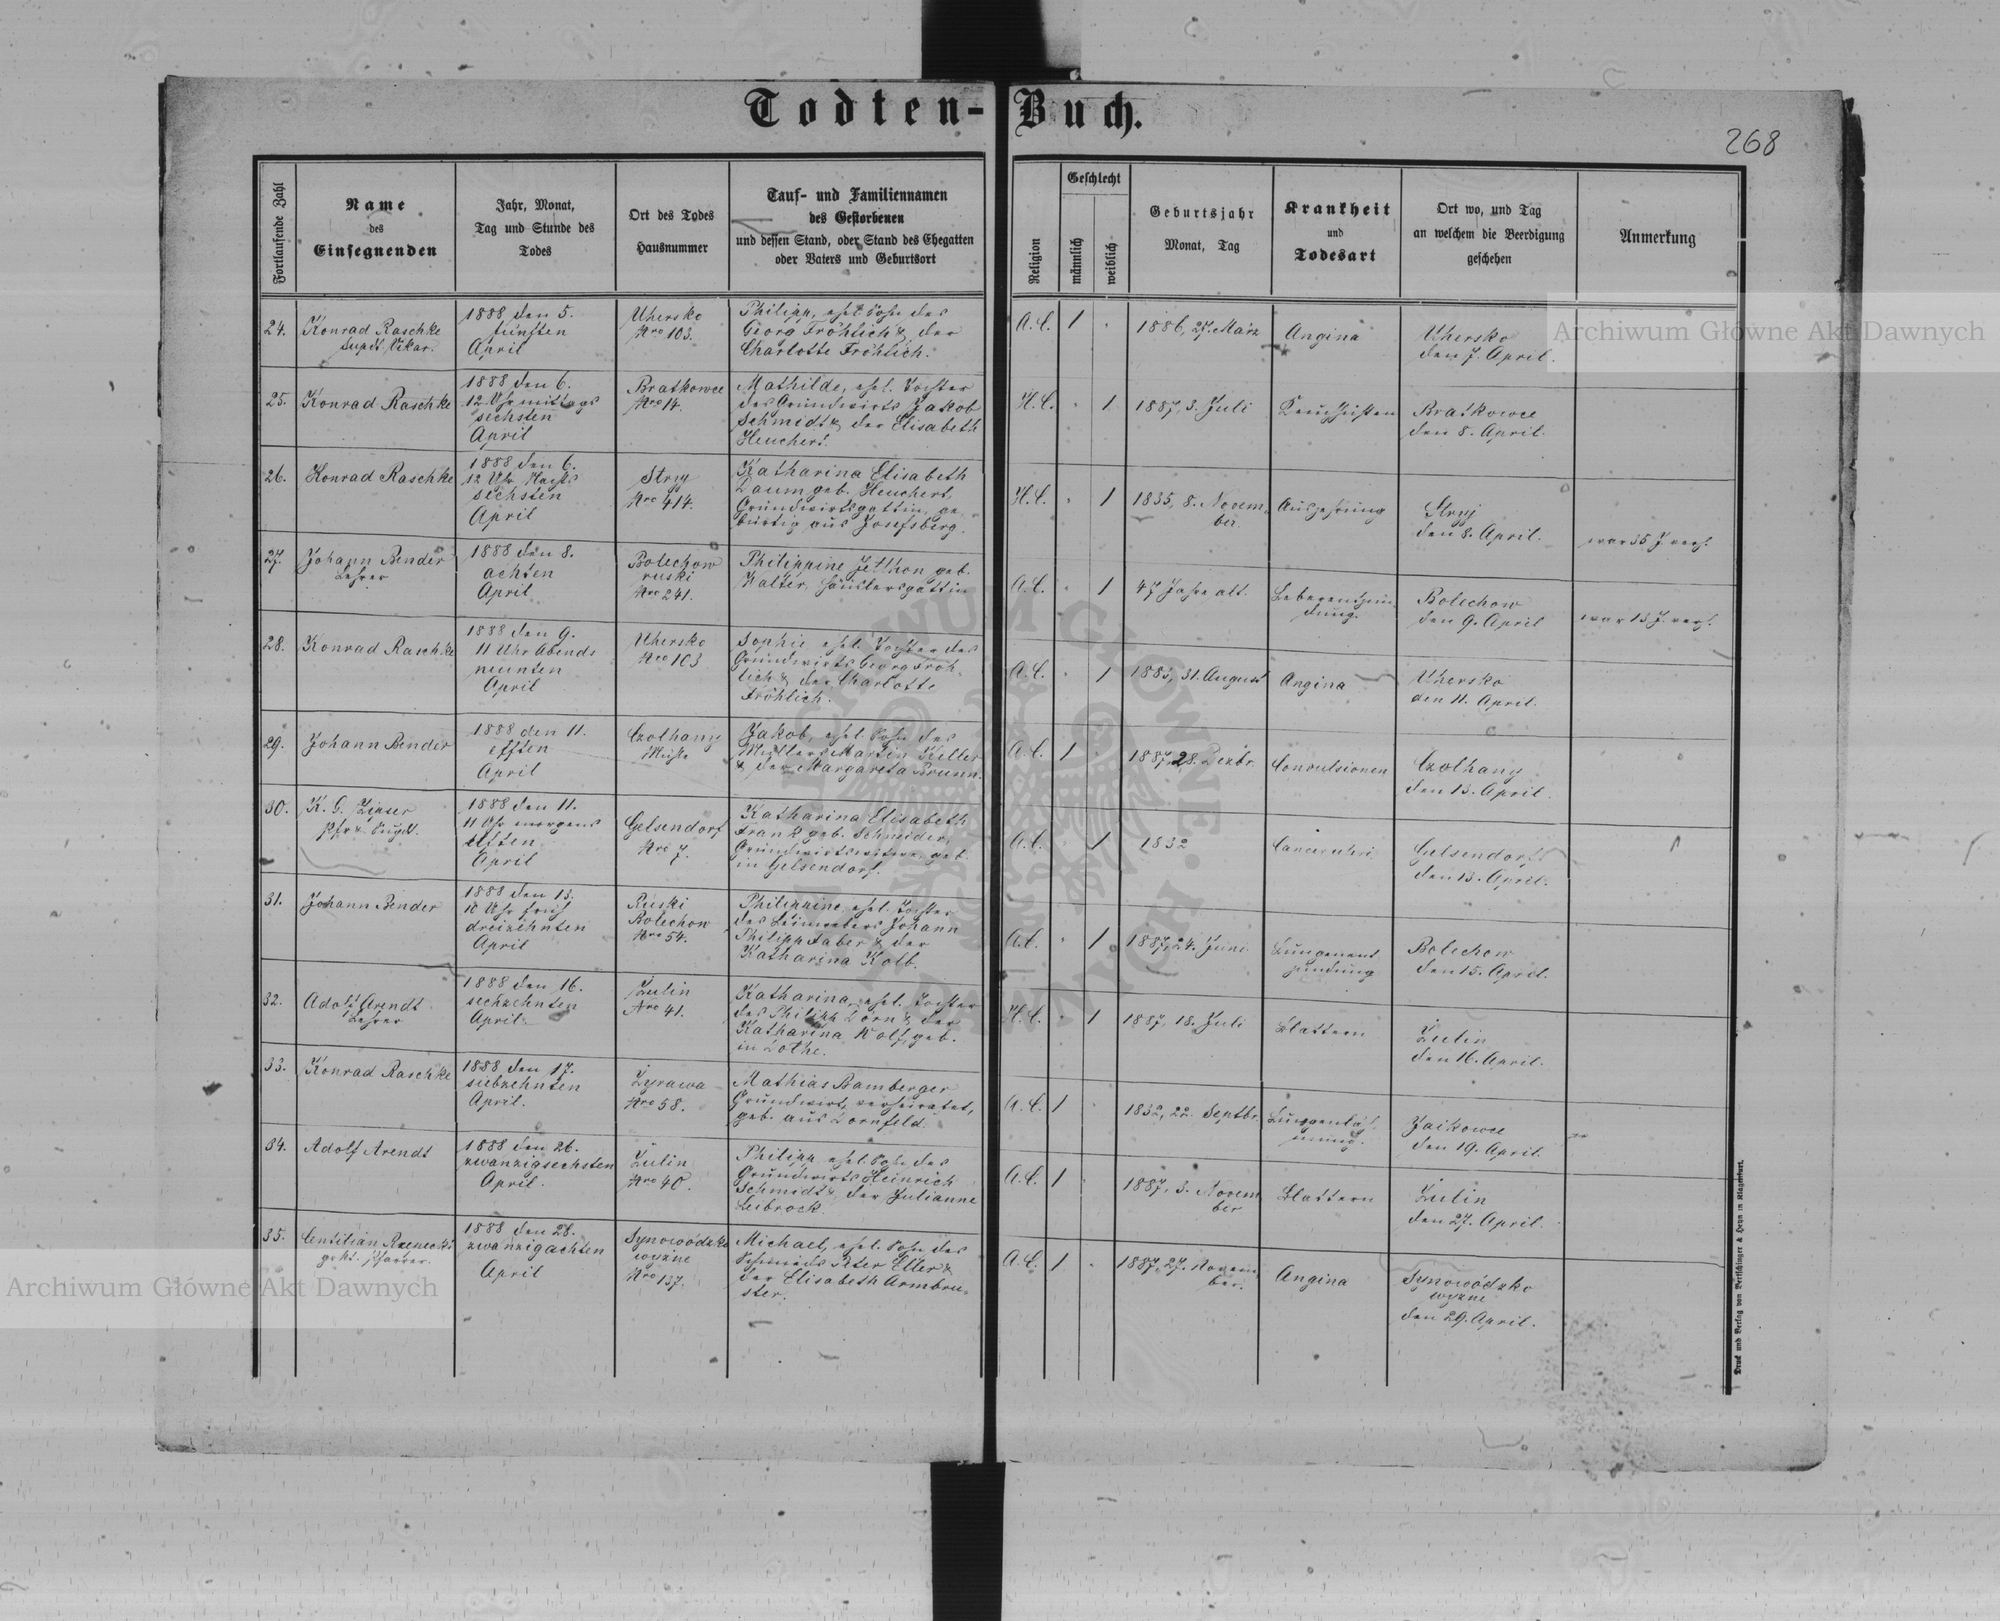 Todten-Buch.
268
Fortlaufende Zahl
Name
des
Einsegnenden
Jahr, Monat,
Tag und Stunde des
Todes
Ort des Todes
Hausnummer
Tauf- und Familiennamen
des Gestorbenen
und dessen Stand, oder Stand des Ehegatten
oder Vaters und Geburtsort
Religion
Geschlecht
männlich
weiblich
Geburtsjahr
Monat, Tag
Krankheit
und
Todesart
Ort wo, und Tag
an welchem die Beerdigung
geschehen
Anmerkung
24.
Konrad Raschke
Supdt. Vikar.
1888 den 5.
fünften
April
Uhersko
Nro 103.
Philipp, ehel. Sohn des
Georg Fröhlich & der
Charlotte Fröhlich.
A.C. 1
1886, 27. März
Angina
Uhersko
den 7. April.
25.
Konrad Raschke
1888 den 6.
12 Uhr mittags
sechsten
April
Bratkowce
Nro 14.
Mathilde, ehel. Tochter
des Grundwirts Jakob
Schmidt & der Elisabeth
Heuchert.
H.C. 1
1887, 3. Juli
Keuchhusten
Bratkowce
den 8. April.
26.
Konrad Raschke
1888 den 6.
12 Uhr Nachts
sechsten
April
Stryj
Nro 414.
Katharina Elisabeth
Daum geb. Heuchert,
Grundwirtsgattin, ge-
bürtig aus Josefsberg.
H.C. 1
1835, 8. Novem-
ber.
Auszehrung
Stryj
den 8. April.
war 35 J. verh.
27.
Johann Bender
Lehrer
1888 den 8.
achten
April
Bolechow
ruski
Nro 241.
Philippine Jetthon geb.
Walter, Häuslersgattin
A.C. 1
47 Jahre alt.
Leberentzün-
dung.
Bolechow
den 9. April
war 15 J. verh.
28.
Konrad Raschke
1888 den 9.
11 Uhr Abends
neunten
April
Uhersko
Nro 103
Sophie ehel. Tochter des
Grundwirts Georg Fröh-
lich & der Charlotte
Fröhlich.
A.C. 1
31. August
Angina
Uhersko
den 11. April.
29.
Johann Bender
1888 den 11.
elften
April
Czolhany
Jakob, ehel. Sohn des
Müllers Martin Keller
& der Margareta Brunn.
A.C. 1
1887, 28. Dezbr.
Convulsionen
Czolhany
den 13. April.
30.
K. G. Zipser
1888 den 11.
11 Uhr morgens
elften
April
Gelsendorf
Nro 7.
Katharina Elisabeth
Frank geb. Schneider,
Grundwirtswitwe, geb.
in Gelsendorf.
A.C. 1
1832
Cancer uteri
Gelsendorf
den 13. April.
31.
Johann Bender
1888 den 13.
10 Uhr früh
dreizehnten
April
Ruski
Bolechow
Nro 54.
Philippine, ehel. Tochter
des Johann
Philipp Faber & der
Katharina Kolb.
A.C. 1
1887, 24. Juni
Lungenent-
zündung
Bolechow
den 15. April.
32.
Adolf Arendt
Lehrer
1888 den 16.
sechzehnten
April
Żulin
Nro 41.
Katharina, ehel. Tochter
des Philipp Dorn & der
Katharina Wolf, geb.
in
H.C. 1
1887, 18. Juli
Blattern
Żulin
den 16. April.
33.
Konrad Raschke
1888 den 17.
siebzehnten
April.
Żyrawa
Nro 58.
Mathias Bamberger
Grundwirt, verheiratet,
geb. aus Dornfeld.
A.C. 1
1832, 22. Septbr.
Lungenläh-
mung.
Zaikowce
den 19. April.
34.
Adolf Arendt
1888 den 26.
zwanzigsechsten
April.
Żulin
Nro 40.
Philipp ehel. Sohn des
Grundwirts Heinrich
Schmidt & der Julianne
Leibrock.
A.C. 1
1887, 3. Novem-
ber
Blattern
Żulin
den 27. April.
35.
Pfarrer.
1888 den 28.
zwanzigachten
April
Synowódzko
wyżne
Nro 137.
Michael, ehel. Sohn des
Schmieds Peter Eller &
der Elisabeth Armbru-
ster.
A.C. 1
1887, 27. Novem-
ber.
Angina
Synowódzko
wyżne
den 29. April.
Druck und Verlag von Bertschinger & Heyn in Klagenfurt.
Archiwum Główne Akt Dawnych
Archiwum Główne Akt Dawnych